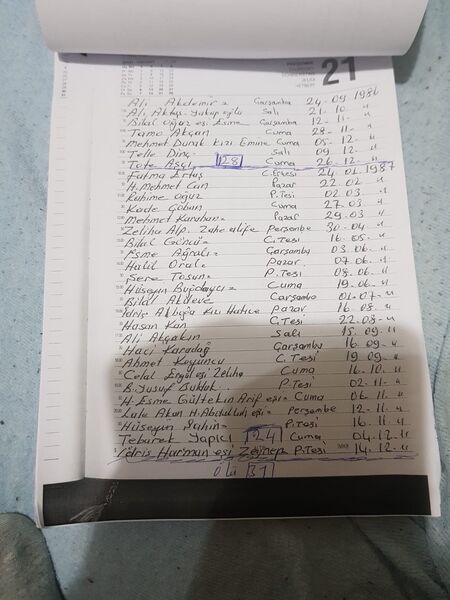 21
Ali Akdemir = Çarşamba 24-09 1986
Ali Aktaş. Yakup oğlu Salı 21.10. "
Bilal Oğuz eşi Esme Çarşamba 12-11- "
Tamo Akçan Cuma 28-11- "
Mehmet Durak Kızı Emine Cuma 05-12 "
Telle Dinç Salı 09.12 "
Tote Aşçı 28 Cuma 26-12 - "
Fatma Ertuş C.Ertesi 24.01-1987
H.Mehmet Can Pazar 22.02 "
Rahime Oğuz P.Tesi 02 03 "
Kade Çoban Cuma 27-03 "
Mehmet Karahan = Pazar 29.03 "
Zeliha Alp. Perşembe 30-04 - "
Bilal Günü = C.Tesi 16-05- "
Esme Ağralı = Çarşamba 03-06- "
Halil Oral = Pazar. 07-06. "
Şere Tosun = P.Tesi 08-06 "
Hüseyin Buğdaycı = Cuma 19-06 "
Bilal Akdeve Çarşambe 01-07- "
İdris Kızı Hatice Pazar 16-08 "
Hasan Kan C.Tesi 22.08- "
Ali Akçakın Salı 15 09- "
Haci Karadağ Çarşamba 16 09- "
Ahmet Koyuncu C.Tesi 19 09- "
Celal eşi Zeliha Cuma 16-10. "
B.Yusuf P.Tesi 02-11- "
H.Esme Gültekin Arif eşi = Cuma 06-11 "
Lale Akan H.Abdullah eşi = Perşembe 12-11- "
Hüseyin Şahin = P.Tesi 16.11 "
Tebarek Yapıcı 24 Cuma 04.12.11
İdris Harman eşi Zeynep P.Tesi 14.12- "
31